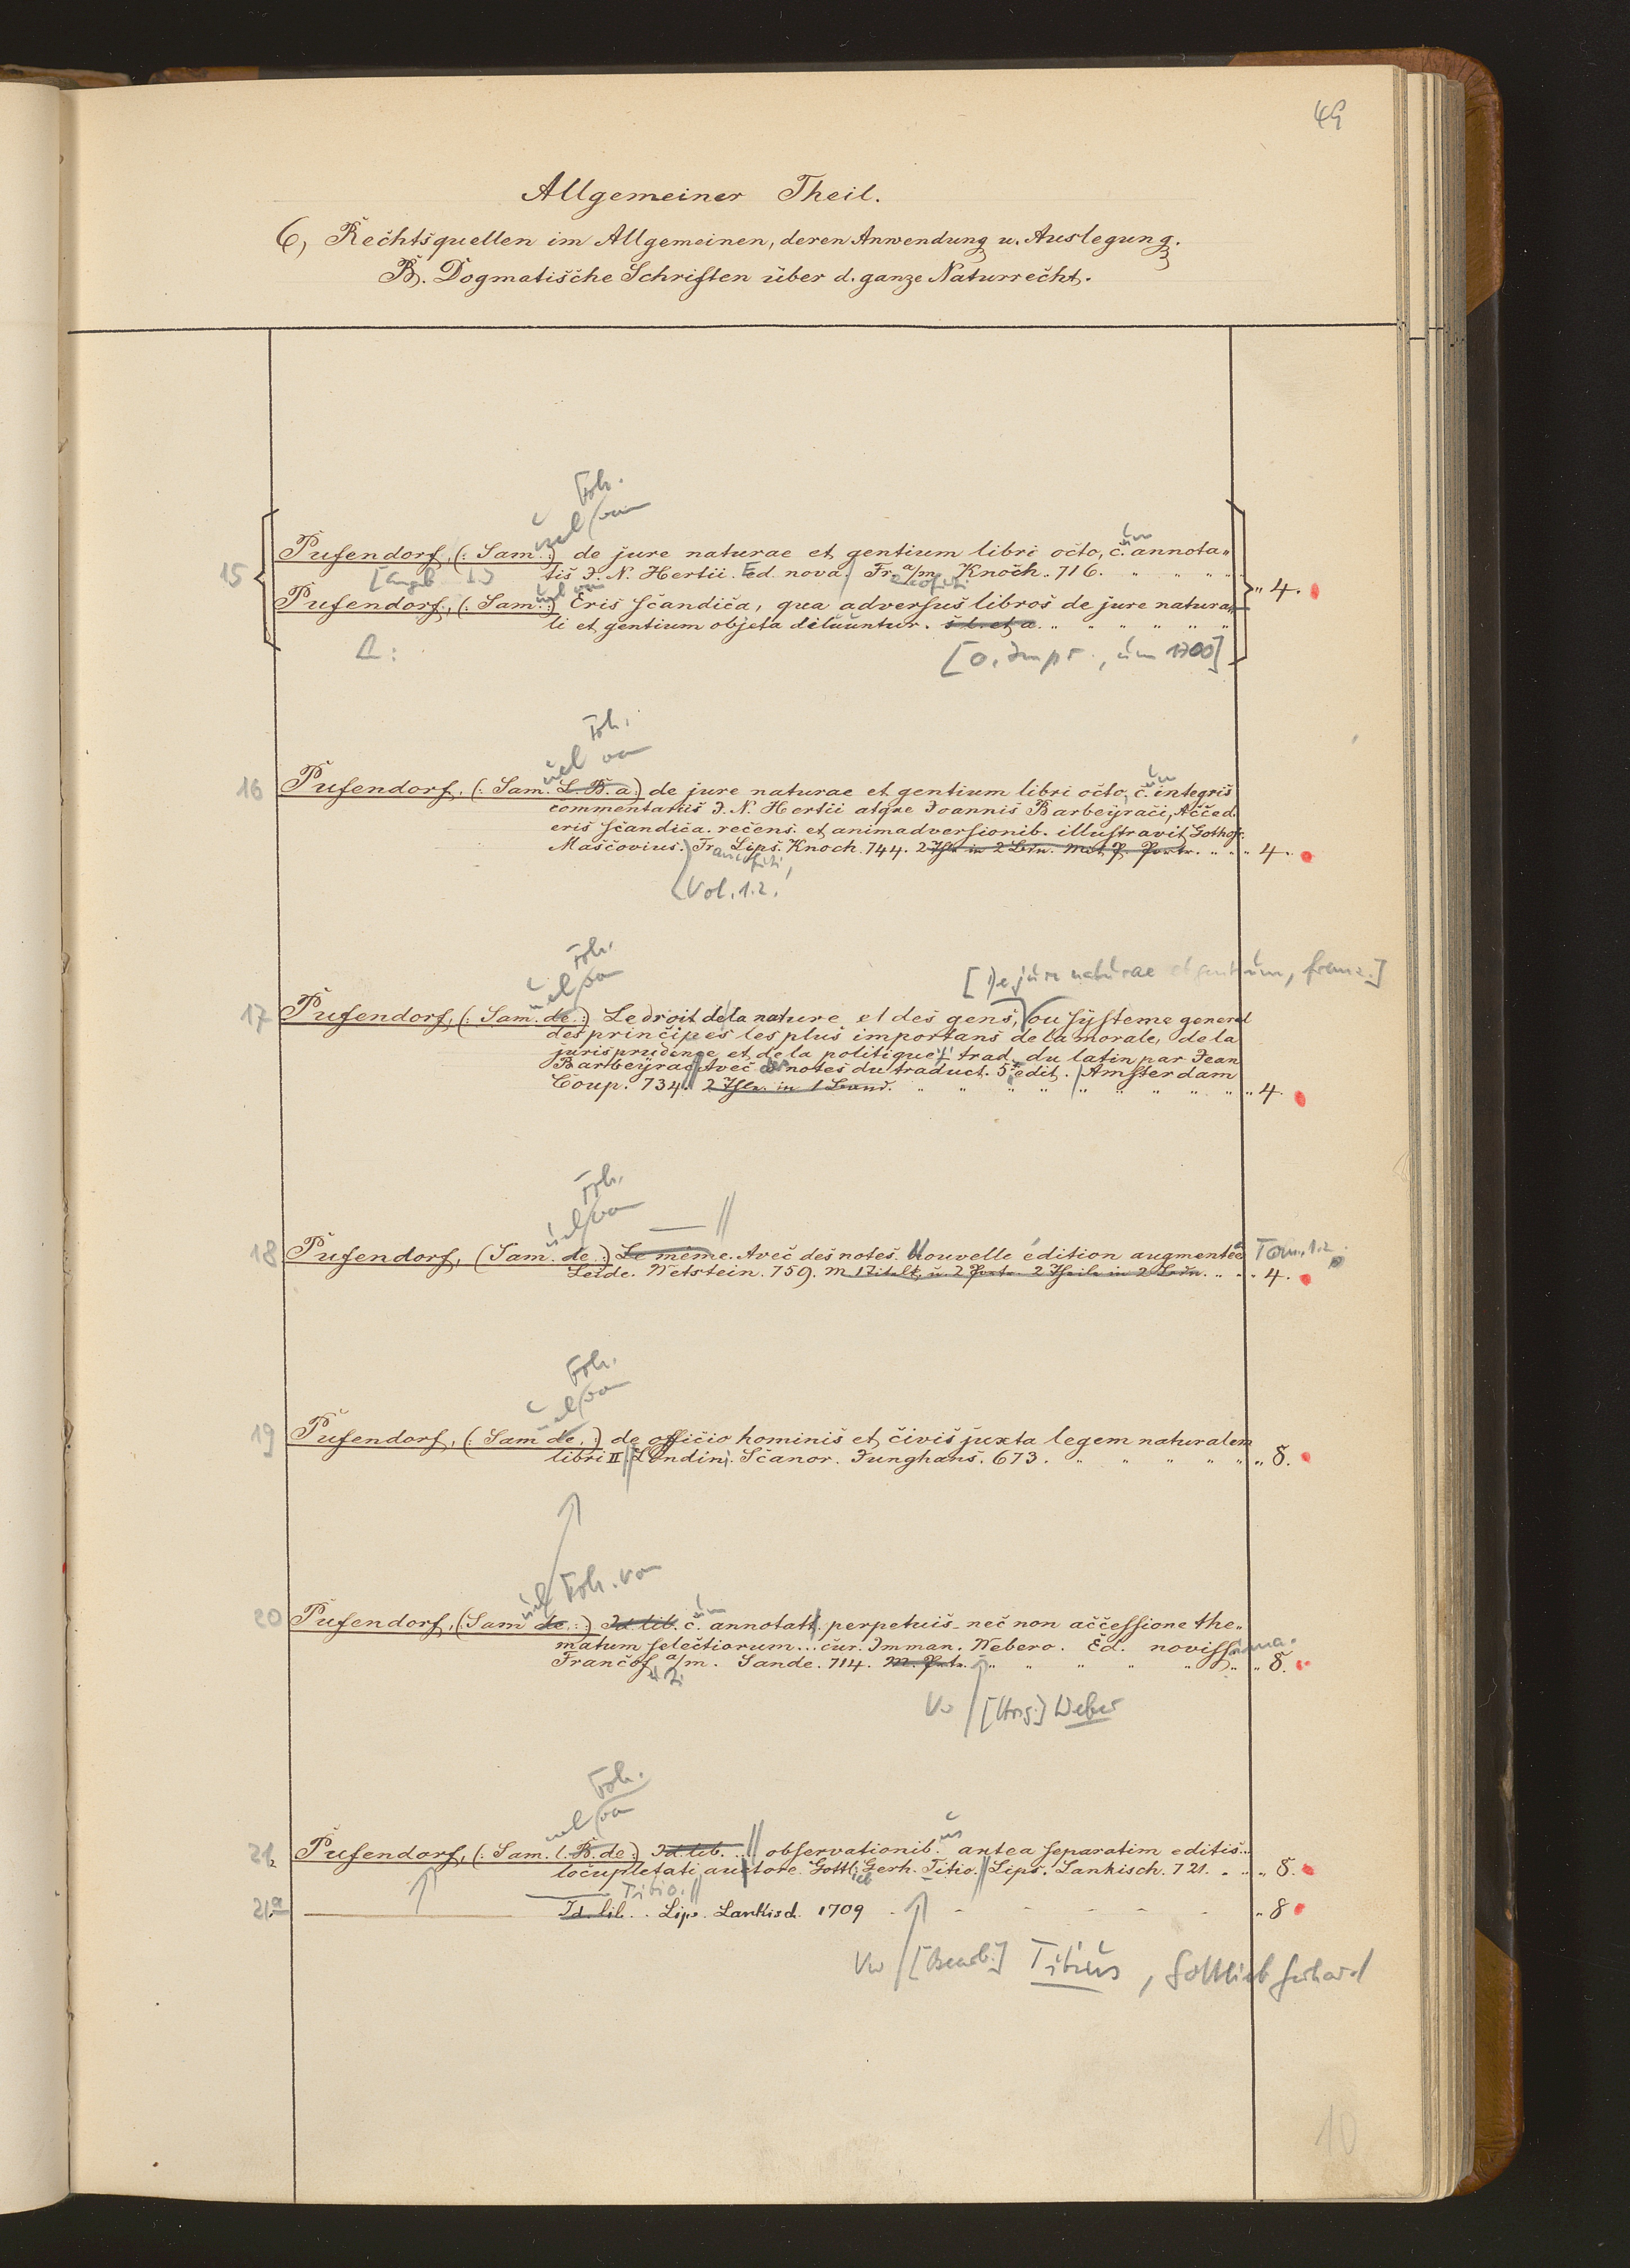 49
Allgemeiner Theil.
6, Rechtsquellen im Allgemeinen, deren Anwendung u. Auslegung.
B. Dogmatische Schriften über d. ganze Naturrecht.
Frh.
uel von
15 Pufendorf, (: Sam. :) de jure naturae et gentium libri octo, c. annota„
um
tis J. N. Hertii. Ed. nova. Fr. a/m Knoch. 716. „ 4.
Pufendorf, (: Sam. :) Eris scandica, qua adversus libros de jure natura„
li et gentium objeta diluuntur. s. l. et a.
[o. Impr., um 1700]
Frh.
uel von
16 Pufendorf, (: Sam. L. B. a :) de jure naturae et gentium libri octo, c. integris
um
commentariis J. N. Hertii atque Joannis Barbeyraci, Acced.
eris scandica. recens. et animadversionib. illustravit Gothofr.
Mascovius. Fr. Lips. Knoch. 744. 2 Thle in 2 Bdn. Mit P. Portr. „ 4.
ancofurti,
Vol. 1.2.
Frh.
uel von
[De jure naturae et gentium, franz.]
17 Pufendorf, (: Sam. de :) Le droit de la nature et des gens, ou systeme general
des principes les plus importans de la morale, de la
jurisprudence et de la politique, trad. du latin par Jean
Barbeyrac Avec notes du traduct. 5e edit. Amsterdam
Coup. 734. 2 Thle. in 1 Band. „ 4.
Frh.
uel von
18 Pufendorf, (Sam. de :) Le même. Avec des notes. Nouvelle édition augmentée Tom. 1.2.
Leide. Wetstein. 759. m 1 Titelk. u. 2 Portr. 2 Theile in 2 Bdn. „ 4.
Frh.
uel von
19 Pufendorf, (: Sam de. :) de officio hominis et civis juxta legem naturalem
libri II. Londini. Scanor. Junghans. 673. „ 8.
uel Frh. von
20 Pufendorf, (Sam de. :) Id. lib. c. annotatt. perpetuis nec non accessione the„
um
matum selectiorum... cur. Imman. Webero. Ed. noviss ima.
Francof a/m. Sande. 714. M. Portr. „ 8.
Vw [Hrsg.] Weber
Frh.
uel von
21. Pufendorf, (: Sam. l. B. de :) Id. lib. .. observationib. antea separatim editis..
us
locupletati auctore Gottl. Gerh. Titio. Lips. Lankisch. 721. „ 8.
ieb
Titio.
21.a Id. lib. . Lips. Lankisch. 1709 „ 8
Vw [Bearb.] Titius, Gottlieb Gerhard
10